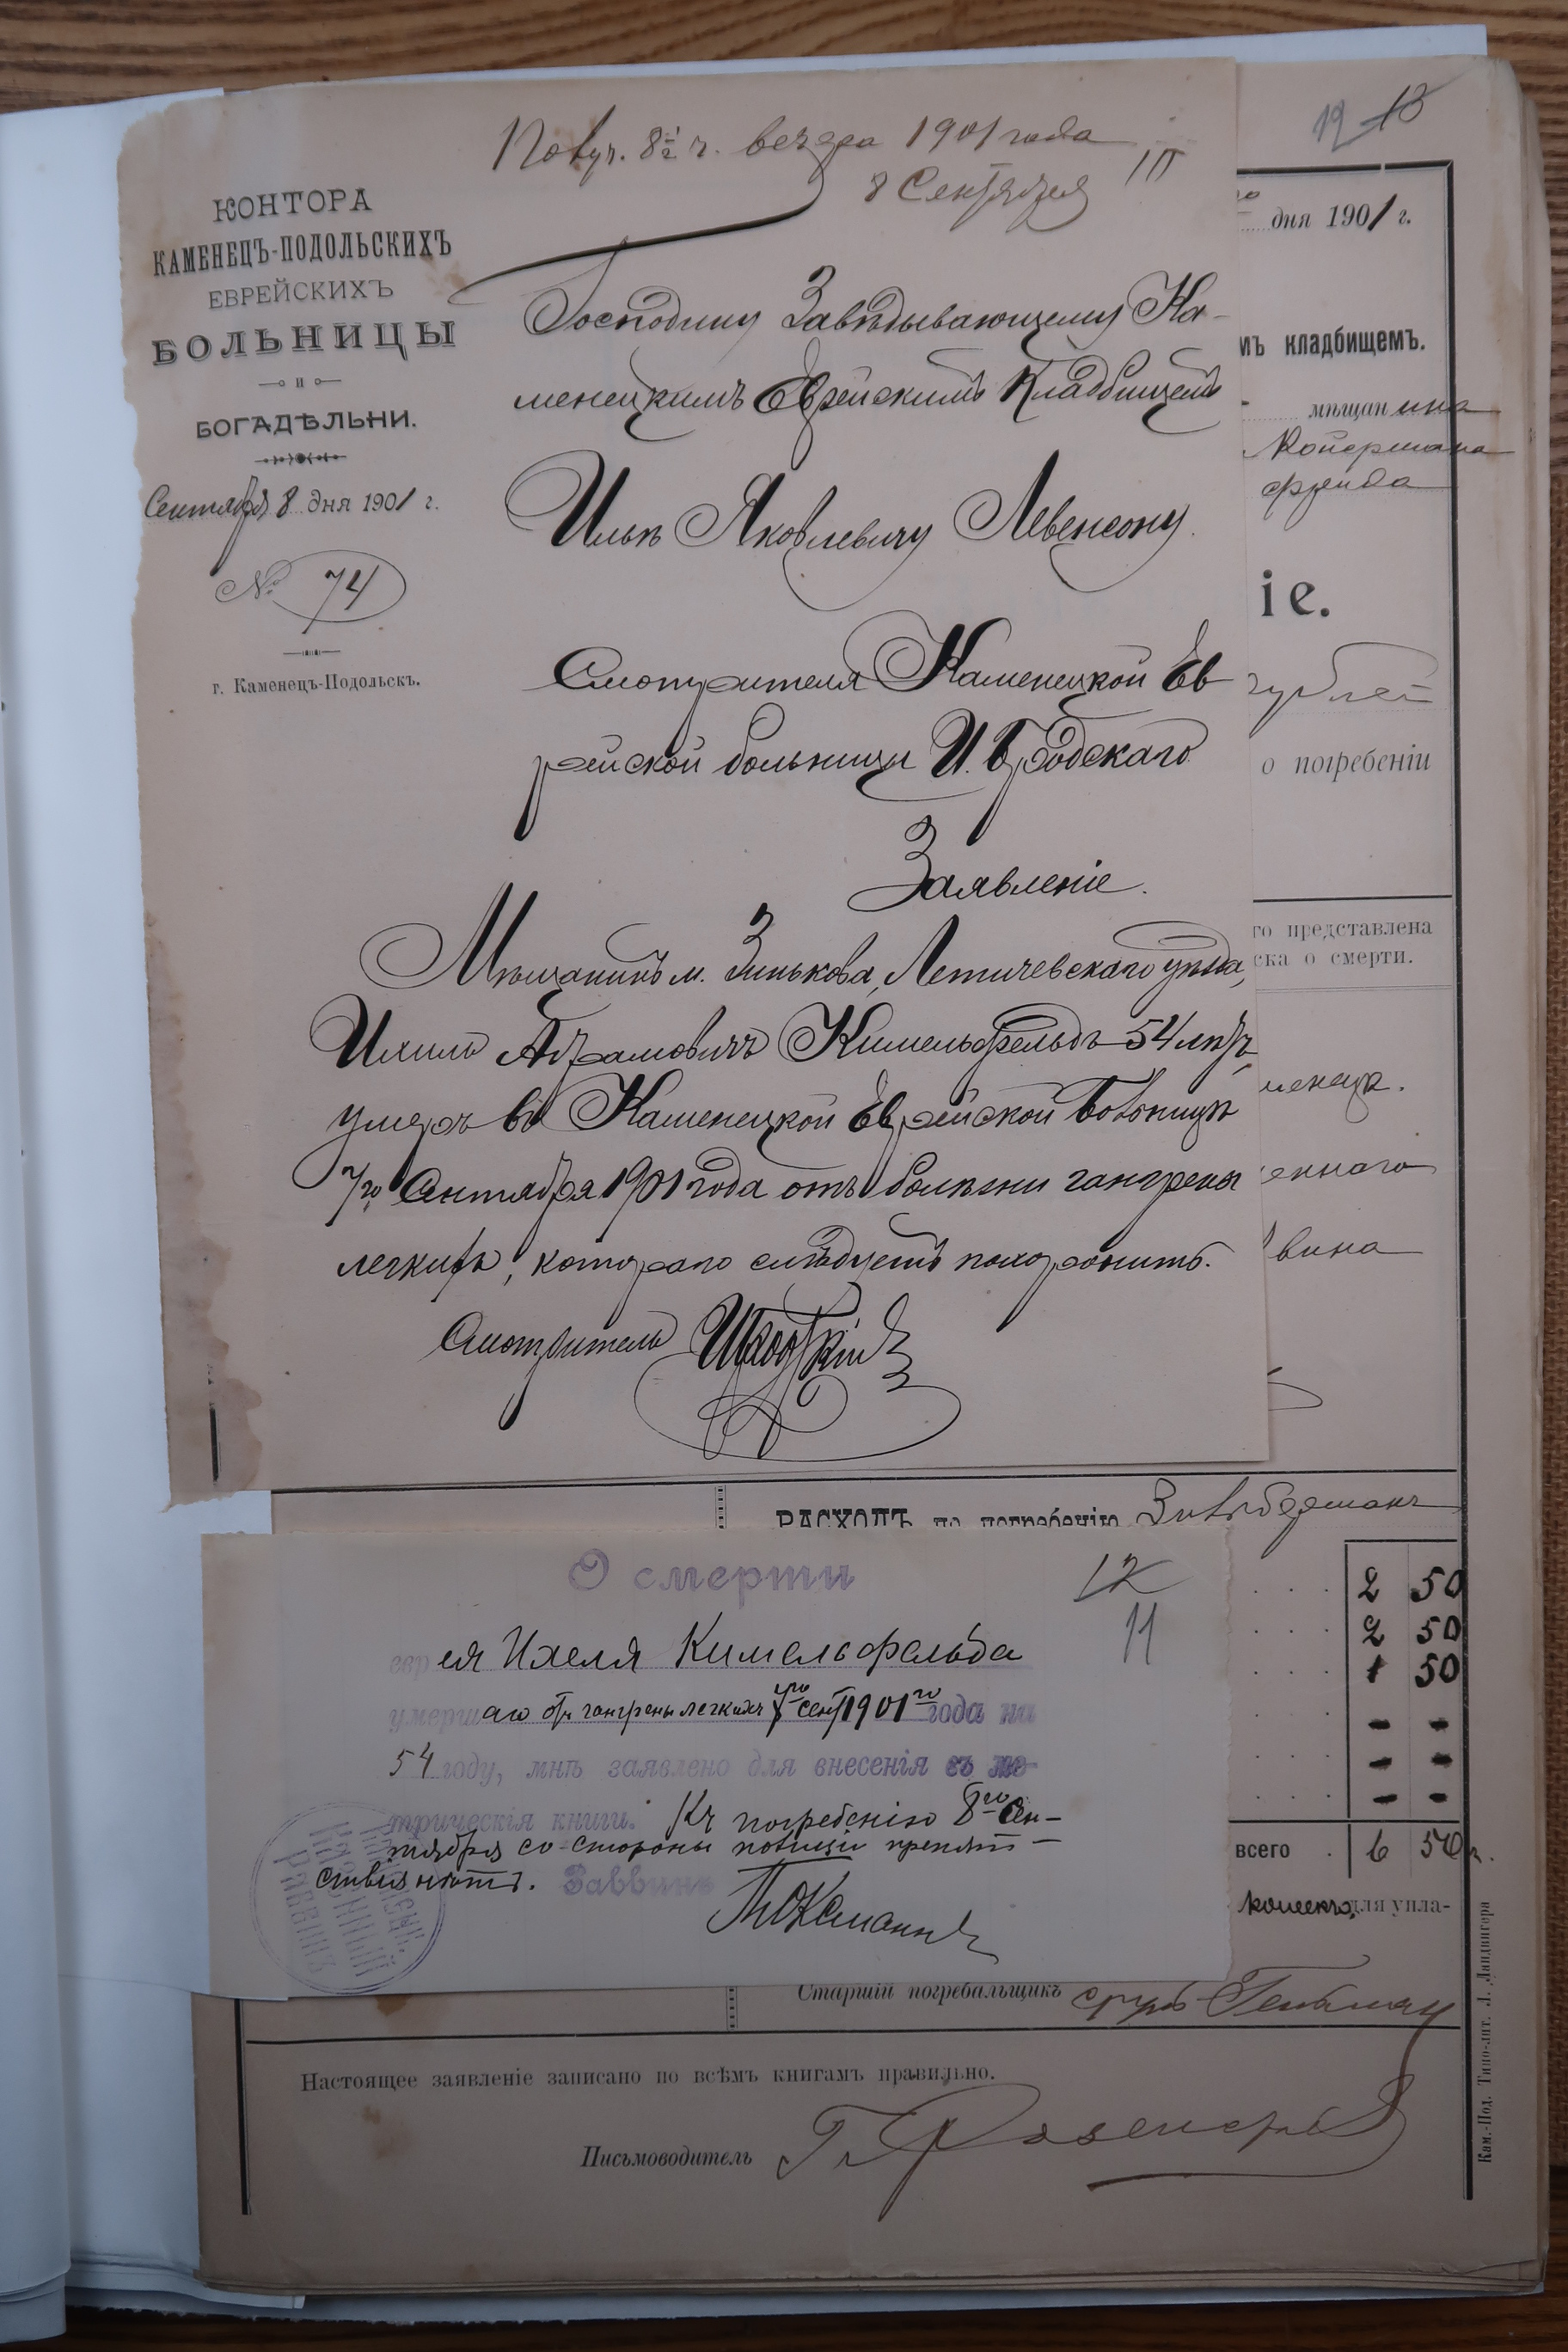 12 13
Получ. 8½ ч. вечера 1901 года
8 Сентября
КОНТОРА
КАМЕНЕЦЪ-ПОДОЛЬСКИХЪ
ЕВРЕЙСКИХЪ
БОЛЬНИЦЫ
И
БОГАДѢЛЬНИ.
Сентября 8 дня 1901 г.
№ 74
г. Каменецъ-Подольскъ.
Господину Завѣдывающему Ка-
менецкимъ Еврейскимъ Кладбищемъ
Ильѣ Яковлевичу Левенсону.
Смотрителя Каменецкой Ев
рейской больницы И. Бродскаго
Заявленіе.
Мѣщанинъ м. Зинькова, Летичевскаго уѣзда,
Ихиль Абрамовичъ Кимельфельдъ 54 лѣтъ,
умеръ въ Каменецкой Еврейской Больницѣ
7го Сентября 1901 года отъ болѣзни гангрены
легкихъ, котораго слѣдуетъ похоронить.
Смотритель
дня 1901 г.
мъ кладбищемъ.
мѣщанина
іе.
о погребеніи
го представлена
ска о смерти.
менецк.
еннаго
вина
РАСХОДЪ по погребенію Зильберманъ
2 50
2 50
1 50
- -
- -
- -
всего 6 50 к.
копѣекъ для упла-
О смерти
12
11
еврея Ихеля Кимельфельда
умершаго отъ гангрены легкихъ 7го сент 1901го года на
54 году, мнѣ заявлено для внесенія въ ме-
трическія книги. Къ погребенію 8го Сен-
тября со стороны полиціи препят-
ствія нѣтъ. Раввинъ
Старшій погребальщикъ
Настоящее заявленіе записано по всѣмъ книгамъ правильно.
Письмоводитель
Кам.-Под. Типо-лит. Л. Ландвигера